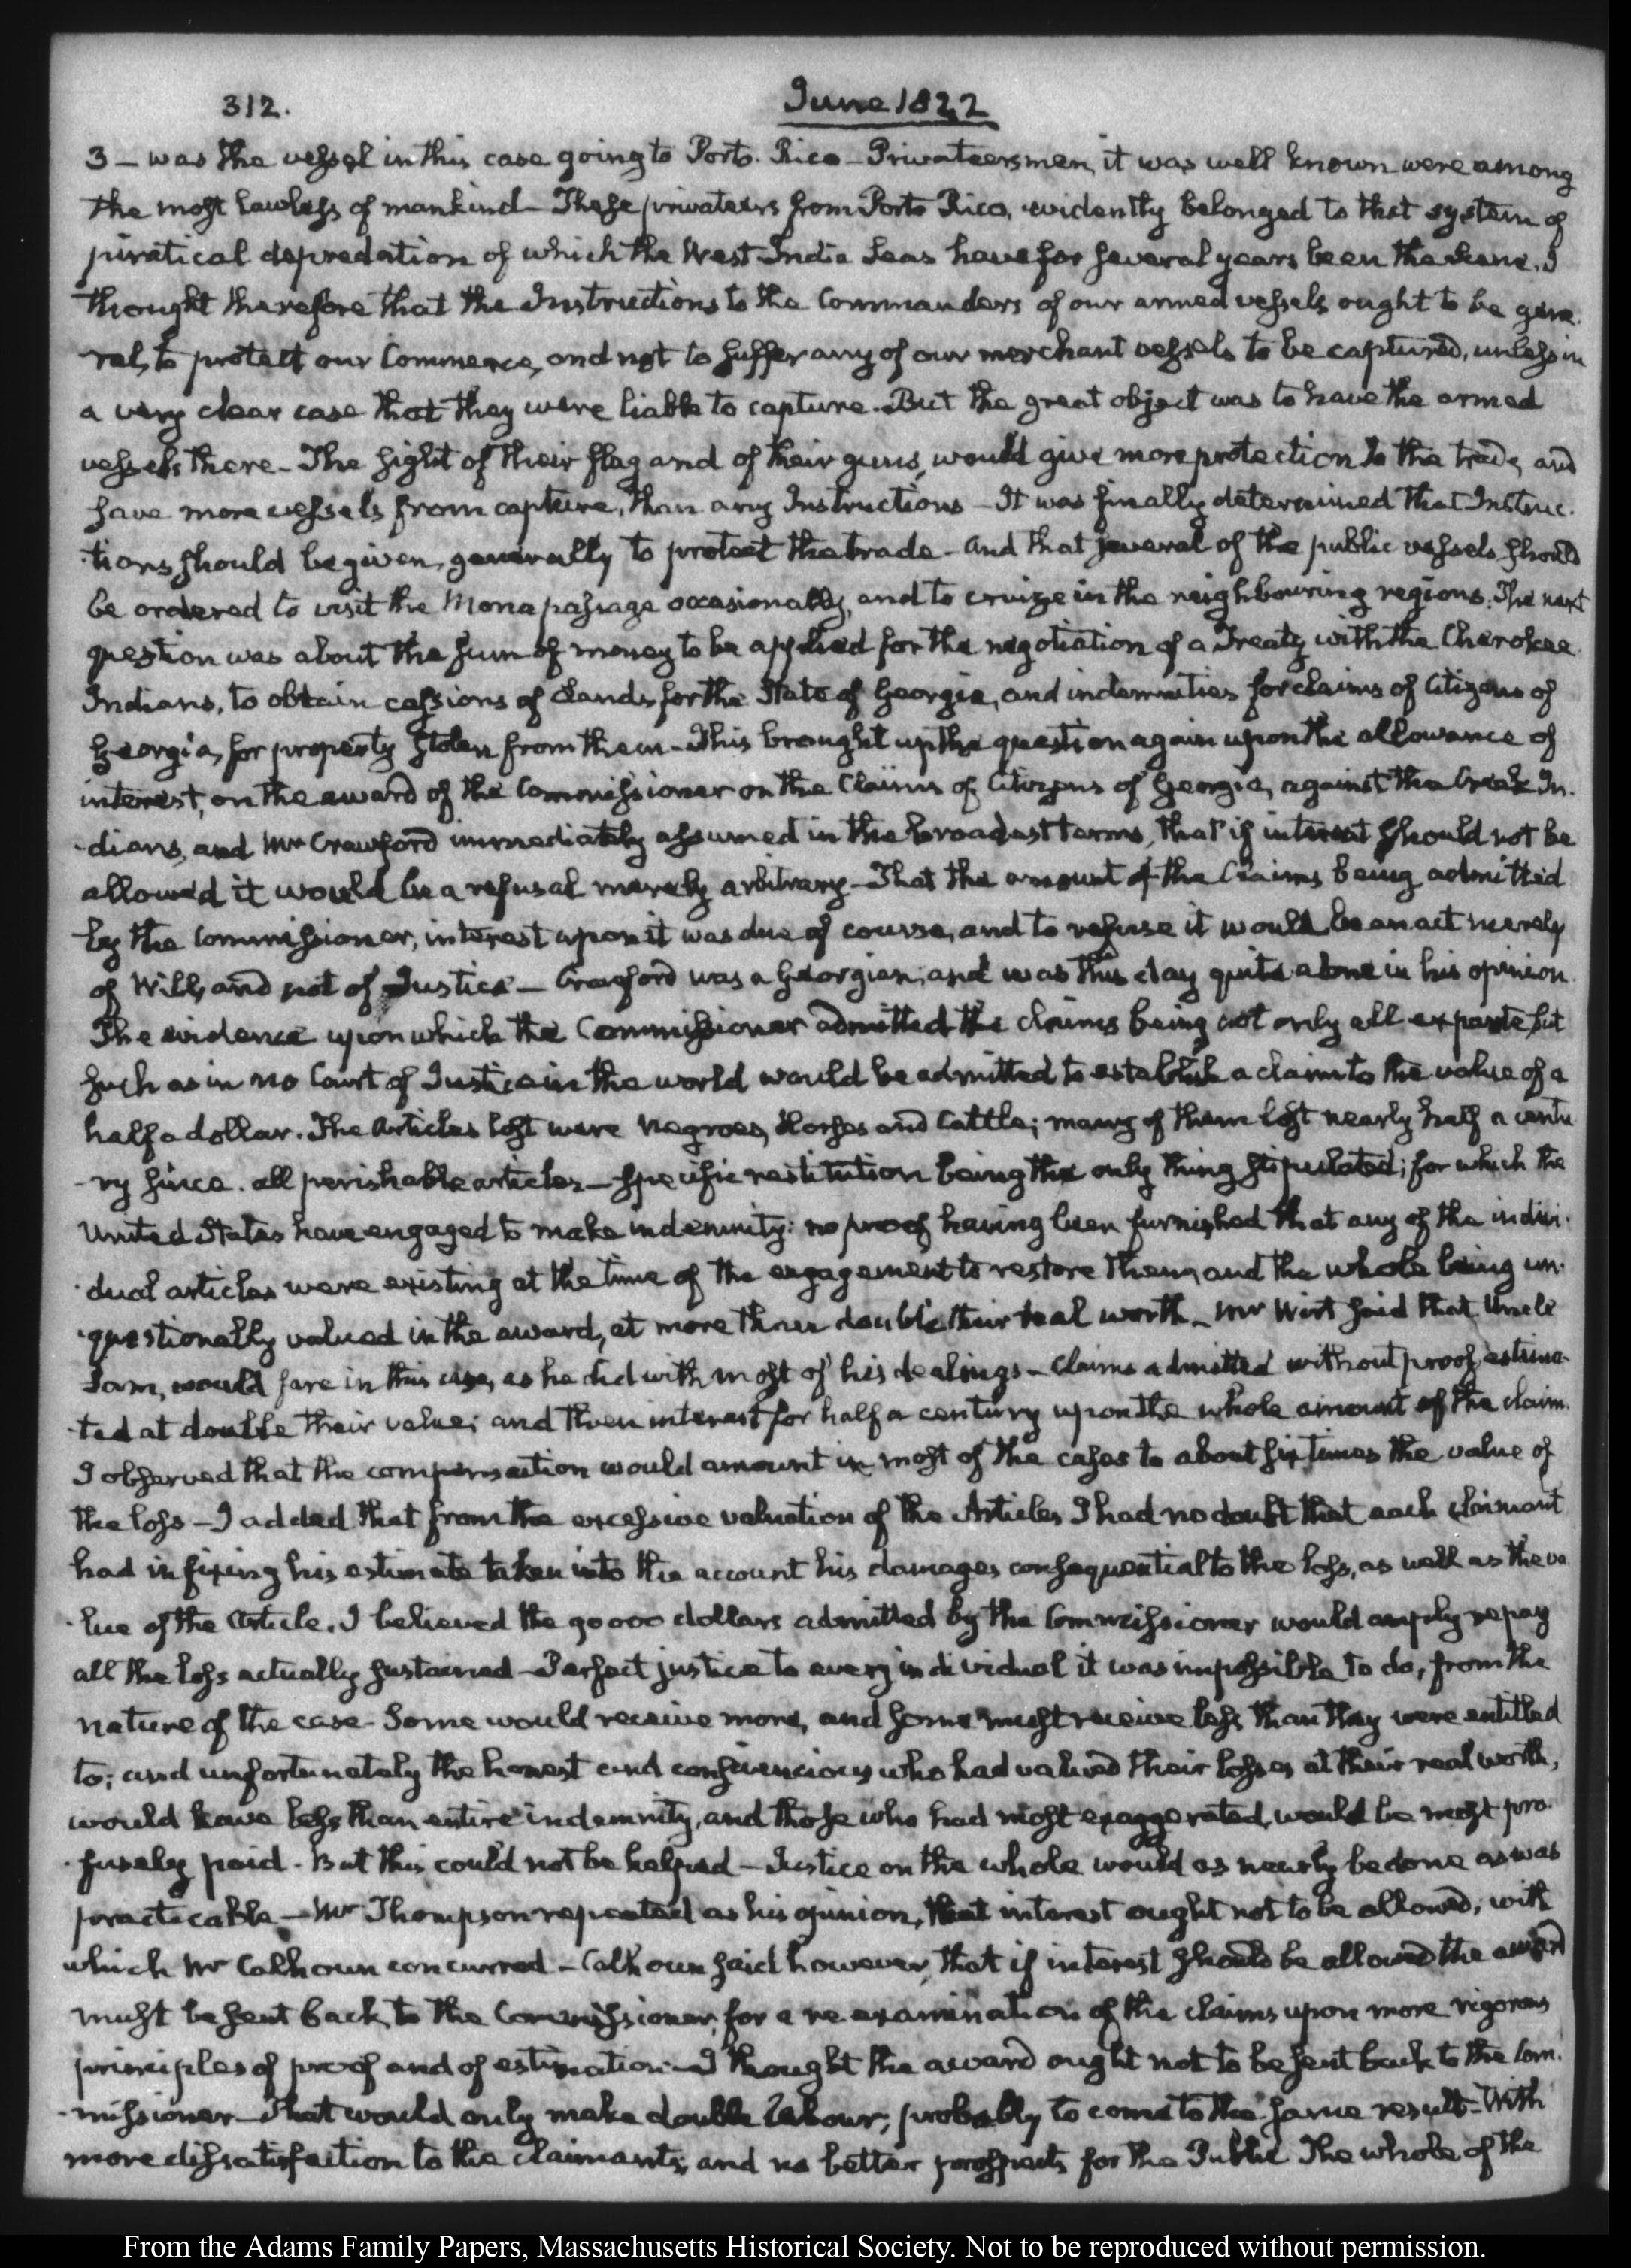 312.
June 1822
3 – was the vessel in this case going to Porto. Rico – Privateersmen, it was well known were among
the most lawless of mankind – These privateers from Porto Rico, evidently belonged to that system of
piratical depredation of which the West-India Seas have for several years been the scene. I
thought therefore that the Instructions to the Commanders of our armed vessels ought to be gene-
-ral, to protect our Commerce, and not to suffer any of our merchant vessels to be captured, unless in
a very clear case that they were liable to capture. But the great object was to have the armed
vessels there – The sight of their flag and of their guns, would give more protection to the trade, and
save more vessels from capture, than any Instructions – It was finally determined that Instruc-
-tions should be given, generally to protect the trade – and that several of the public vessels should
be ordered to visit the Mona passage occasionally, and to cruize in the neighbouring regions. The next
question was about the sum of money to be applied for the negotiation of a Treaty with the Cherokee
Indians, to obtain cessions of Lands for the State of Georgia, and indemnities for claims of Citizens of
Georgia, for property stolen from them – This brought up the question again upon the allowance of
interest, on the award of the Commissioner on the Claims of Citizens of Georgia, against the Creek In-
-dians, and Mr Crawford immediately assumed in the broadest terms, that if interest should not be
allowed it would be a refusal merely arbitrary – That the amount of the Claims being admitted
by the Commissioner, interest upon it was due of course, and to refuse it would be an act merely
of Will, and not of Justice – Crawford was a Georgian, and was this day quite alone in his opinion.
The evidence upon which the Commissioner admitted the claims being not only all ex parte, but
such as in no Court of Justice in the world would be admitted to establish a claim to the value of a
half a dollar. The Articles lost were Negroes, Horses and Cattle; many of them lost nearly half a centu
-ry since. all perishable articles – specific restitution being the only thing stipulated; for which the
United States have engaged to make indemnity: no proof having been furnished that any of the indivi-
-dual articles were existing at the time of the engagement to restore them, and the whole being un-
-questionally valued in the award, at more than double their real worth – Mr Wirt said that Uncle
Sam, would fare in this case, as he did with most of his dealings – Claims admitted without proof, estima-
-ted at double their value; and then interest for half a century upon the whole amount of the claim.
I observed that the compensation would amount in most of the cases to about six times the value of
the loss – I added that from the excessive valuation of the Articles, I had no doubt that each claimant
had in fixing his estimate taken into the account his damages consequential to the loss, as well as the va
-lue of the Article. I believed the 90000 dollars admitted by the Commissioner would amply repay
all the loss actually sustained – Perfect justice to every individual it was impossible to do, from the
nature of the case – Some would receive more, and some must receive less than they were entitled
to; and unfortunately the honest and consciencious who had valued their losses at their real worth,
would have less than entire indemnity, and those who had most exaggerated, would be most pro-
-fusely paid. But this could not be helped – Justice on the whole would as nearly be done as was
practicable – Mr Thompson repeated as his opinion, that interest ought not to be allowed; with
which Mr Calhoun concurred – Calhoun said however, that if interest should be allowed the award
must be sent back, to the Commissioner, for a re examination of the claims upon more rigorous
principles of proof and of estimation – I thought the award ought not to be sent back to the Com-
-missioner – That would only make double labour; probably to come to the same result – With
more dissatisfaction to the Claimants, and no better prospects for the Public. The whole of the
From the Adams Family Papers, Massachusetts Historical Society. Not to be reproduced without permission.